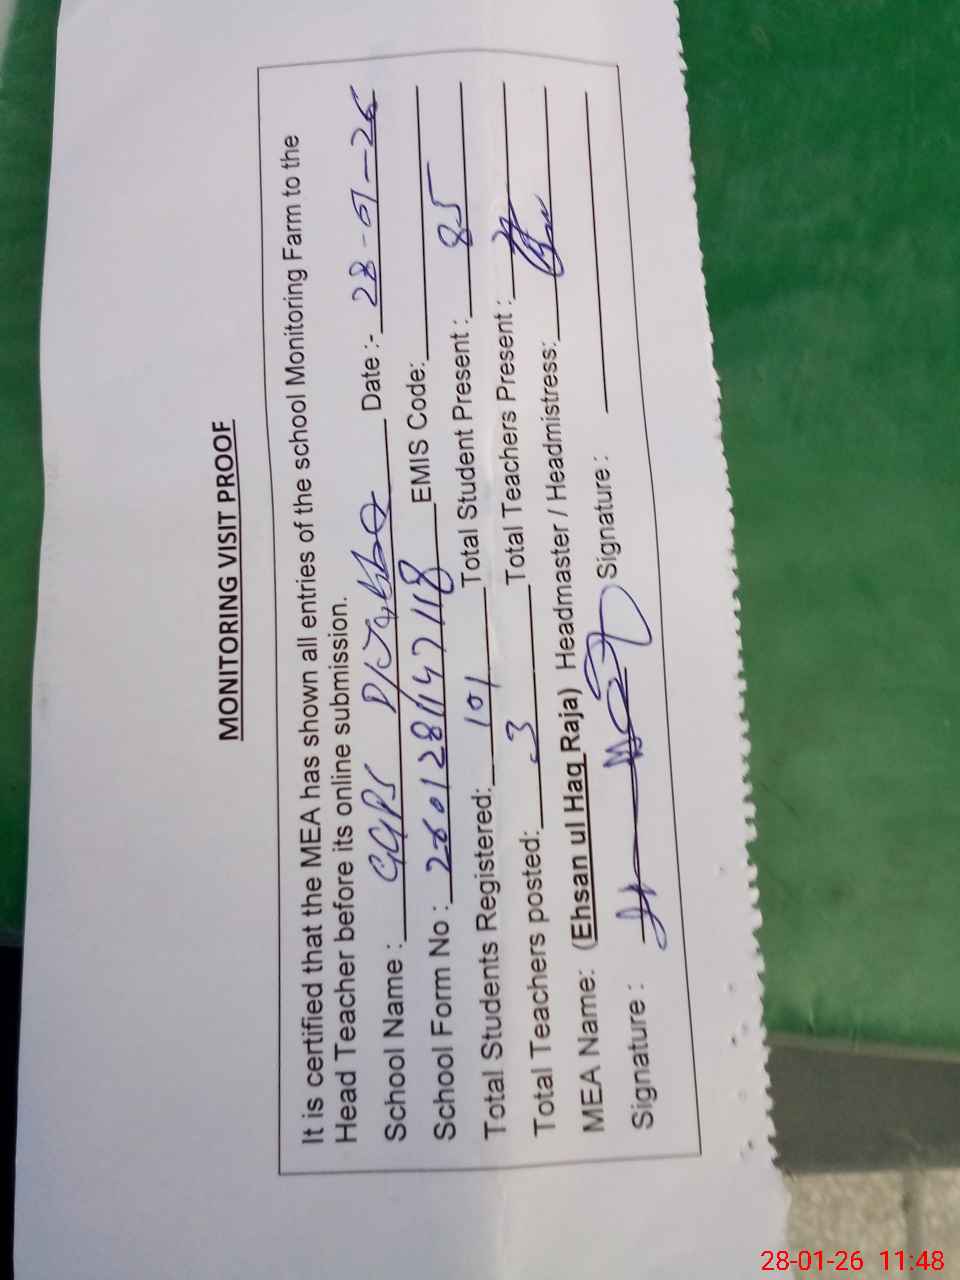 MONITORING VISIT PROOF
It is certified that the MEA has shown all entries of the school Monitoring Farm to the
Head Teacher before its online submission.
School Name : GGPS Date :- 28-01-26
School Form No : 2601281147118 EMIS Code:
Total Students Registered: 101 Total Student Present : 85
Total Teachers posted: 3 Total Teachers Present :
MEA Name: (Ehsan ul Haq Raja) Headmaster / Headmistress:
Signature : Signature :
28-01-26 11:48